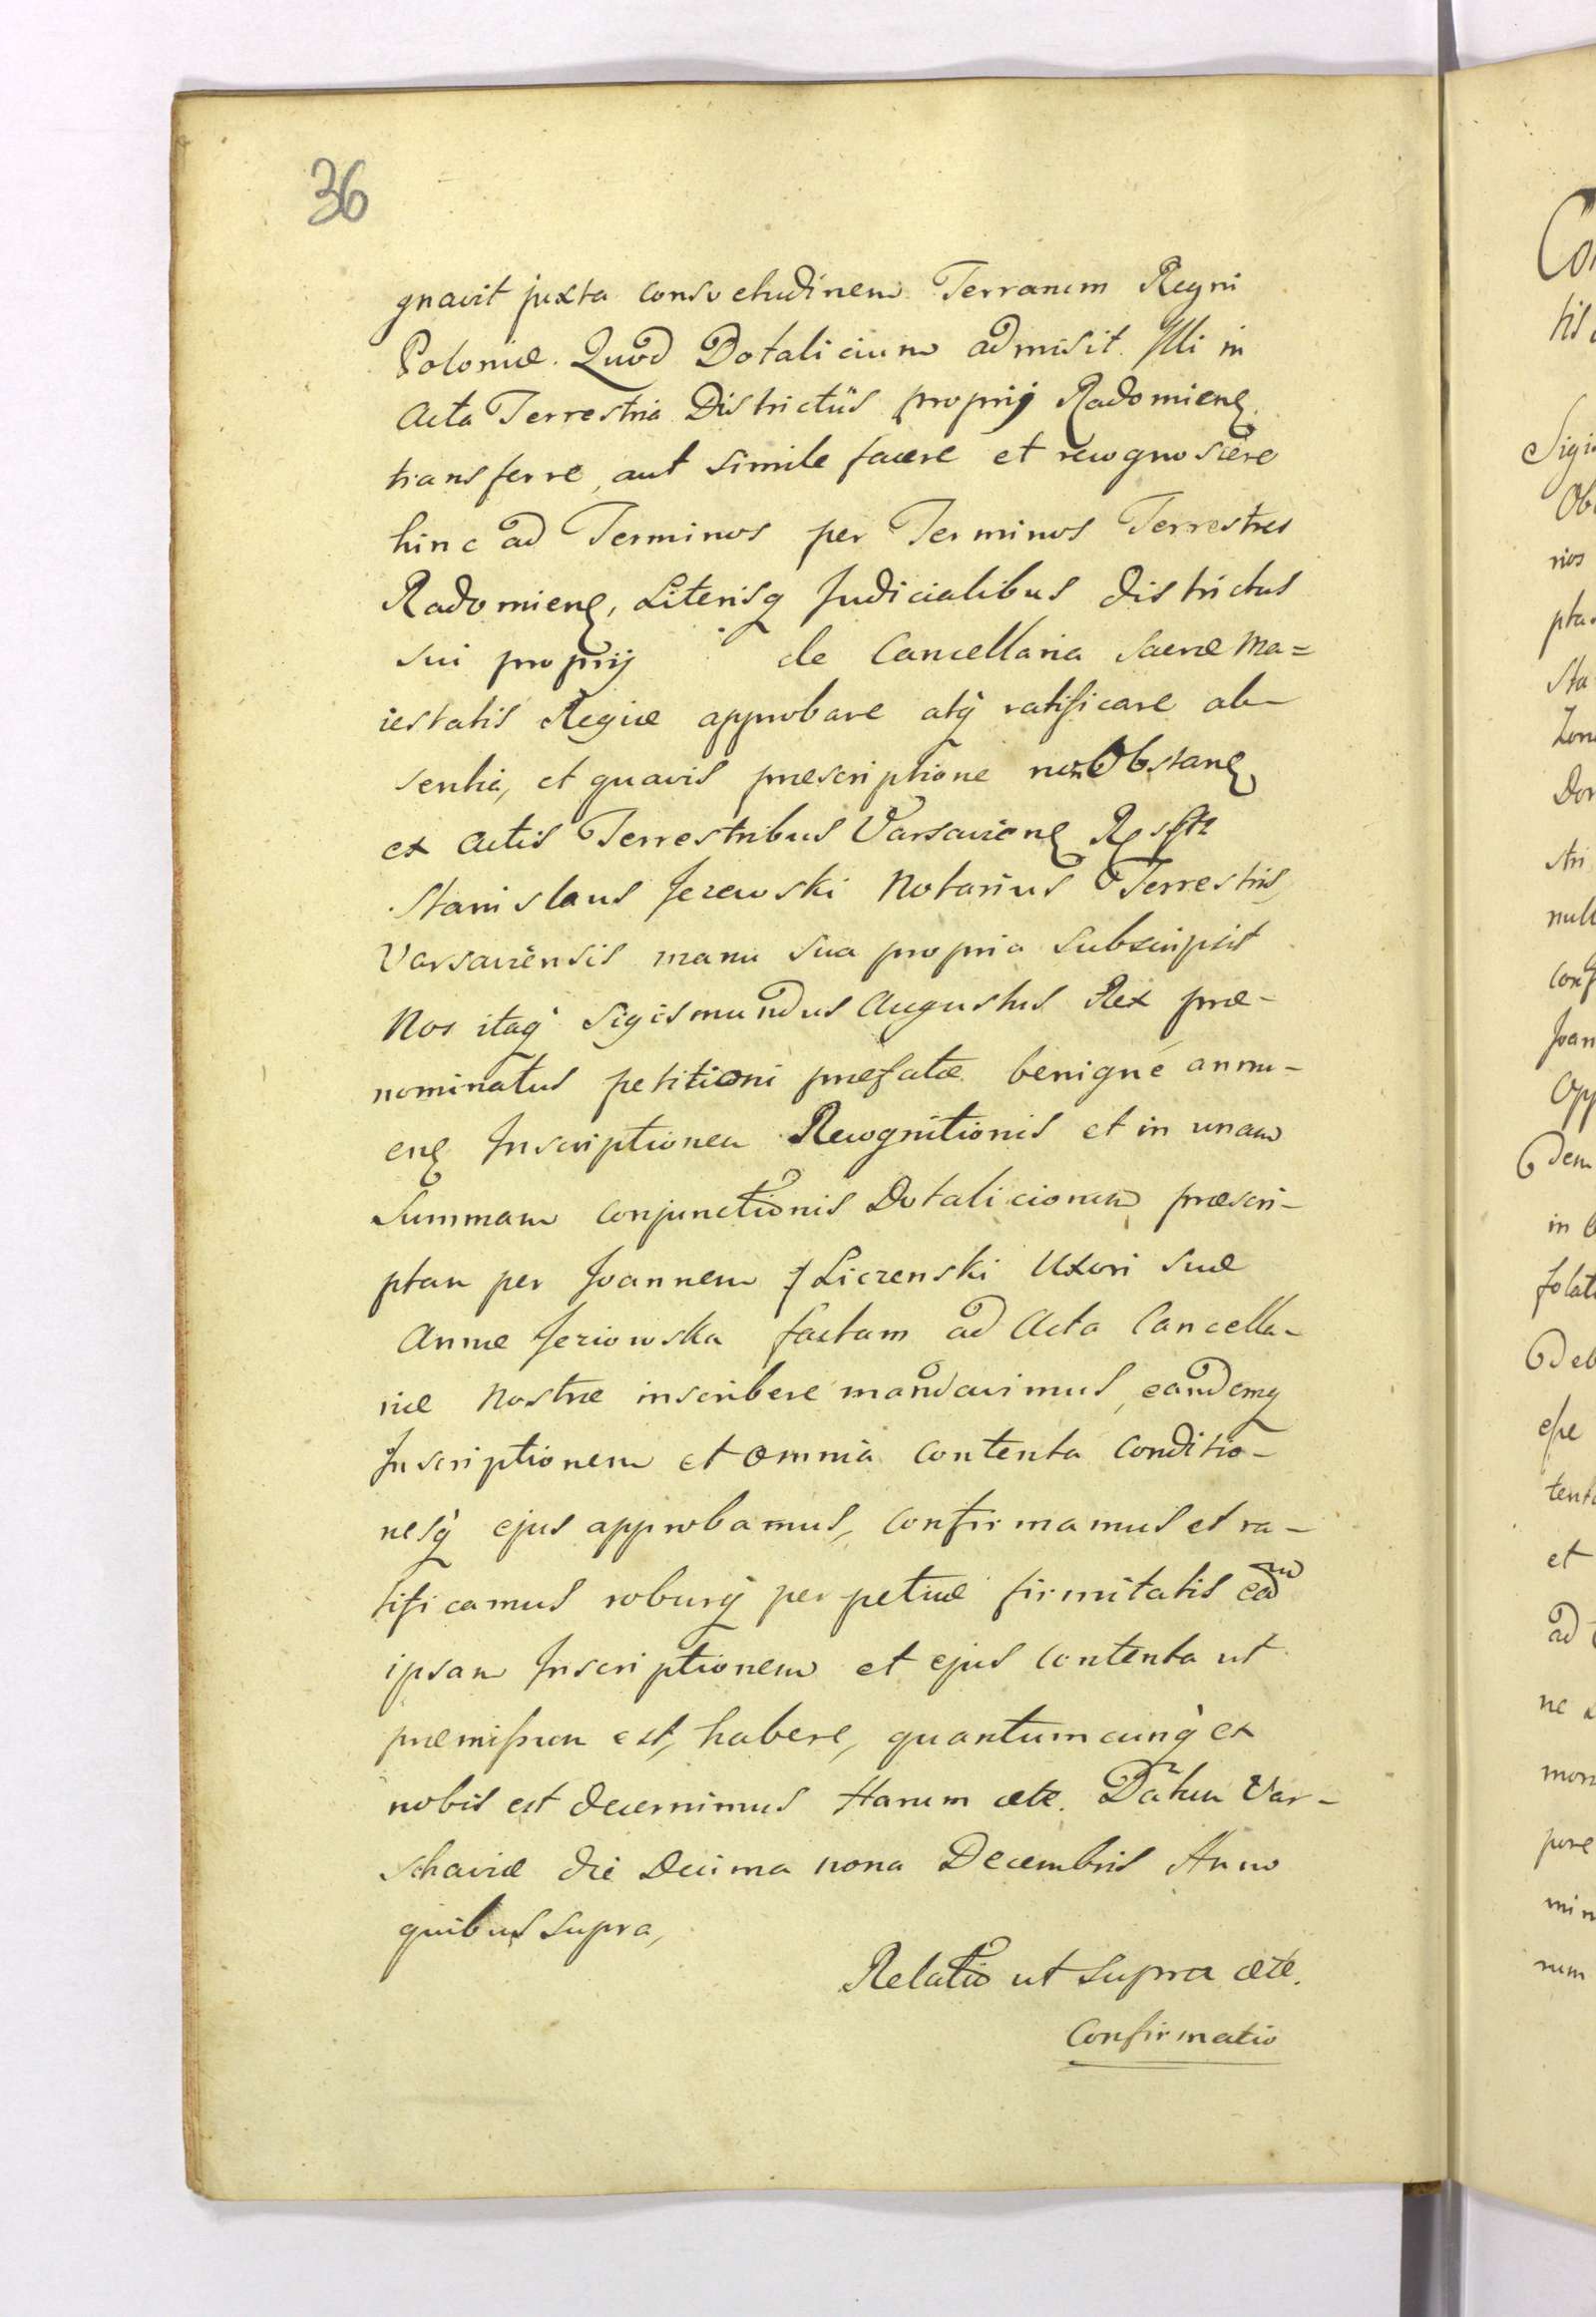 36
gnavit juxta consvetudinem Terrarum Regni
Poloniæ. Quod Dotalicium admisit. Illi in
Acta Terrestria Districtûs proprij Radomien
transferre, aut simile facere et recognoscere
hinc ad Terminos per Terminos Terrestres
Radomien, Literisq Judicialibus districtus
sui proprij de Cancellaria Sacræ Ma=
iestatis Regiæ approbare atq ratificare ab-
sentia, et quavis præscriptione non Obstan
ex Actis Terrestribus Varsavien
Stanislaus Jezewski Notarius Terrestris,
Varsaviensis manu sua propria subscripsit
Nos itaq Sigismundus Augustus Rex præ-
nominatus petitioni præfatæ benigné annu-
en Inscriptionem Recognitionis et in unam
Summam conjunctionis Dotalicionum præscri-
ptam per Joannem Liczenski Uxori suæ
Annæ Jeziowska factam ad Acta Cancella-
riæ Nostræ inscribere mandavimus, eandemq
Inscriptionem et omnia contenta Conditio-
nesq ejus approbamus, confirmamus et ra-
tificamus roburq perpetuæ firmitatis eam
ipsam Inscriptionem et ejus contenta ut
præmissum est, habere, quantumcunq ex
nobis est decernimus Harum ætc. Datum Var-
schaviæ die Decima nona Decembris Anno
quibus supra,
Relatio ut supra ætc.
Confirmatio